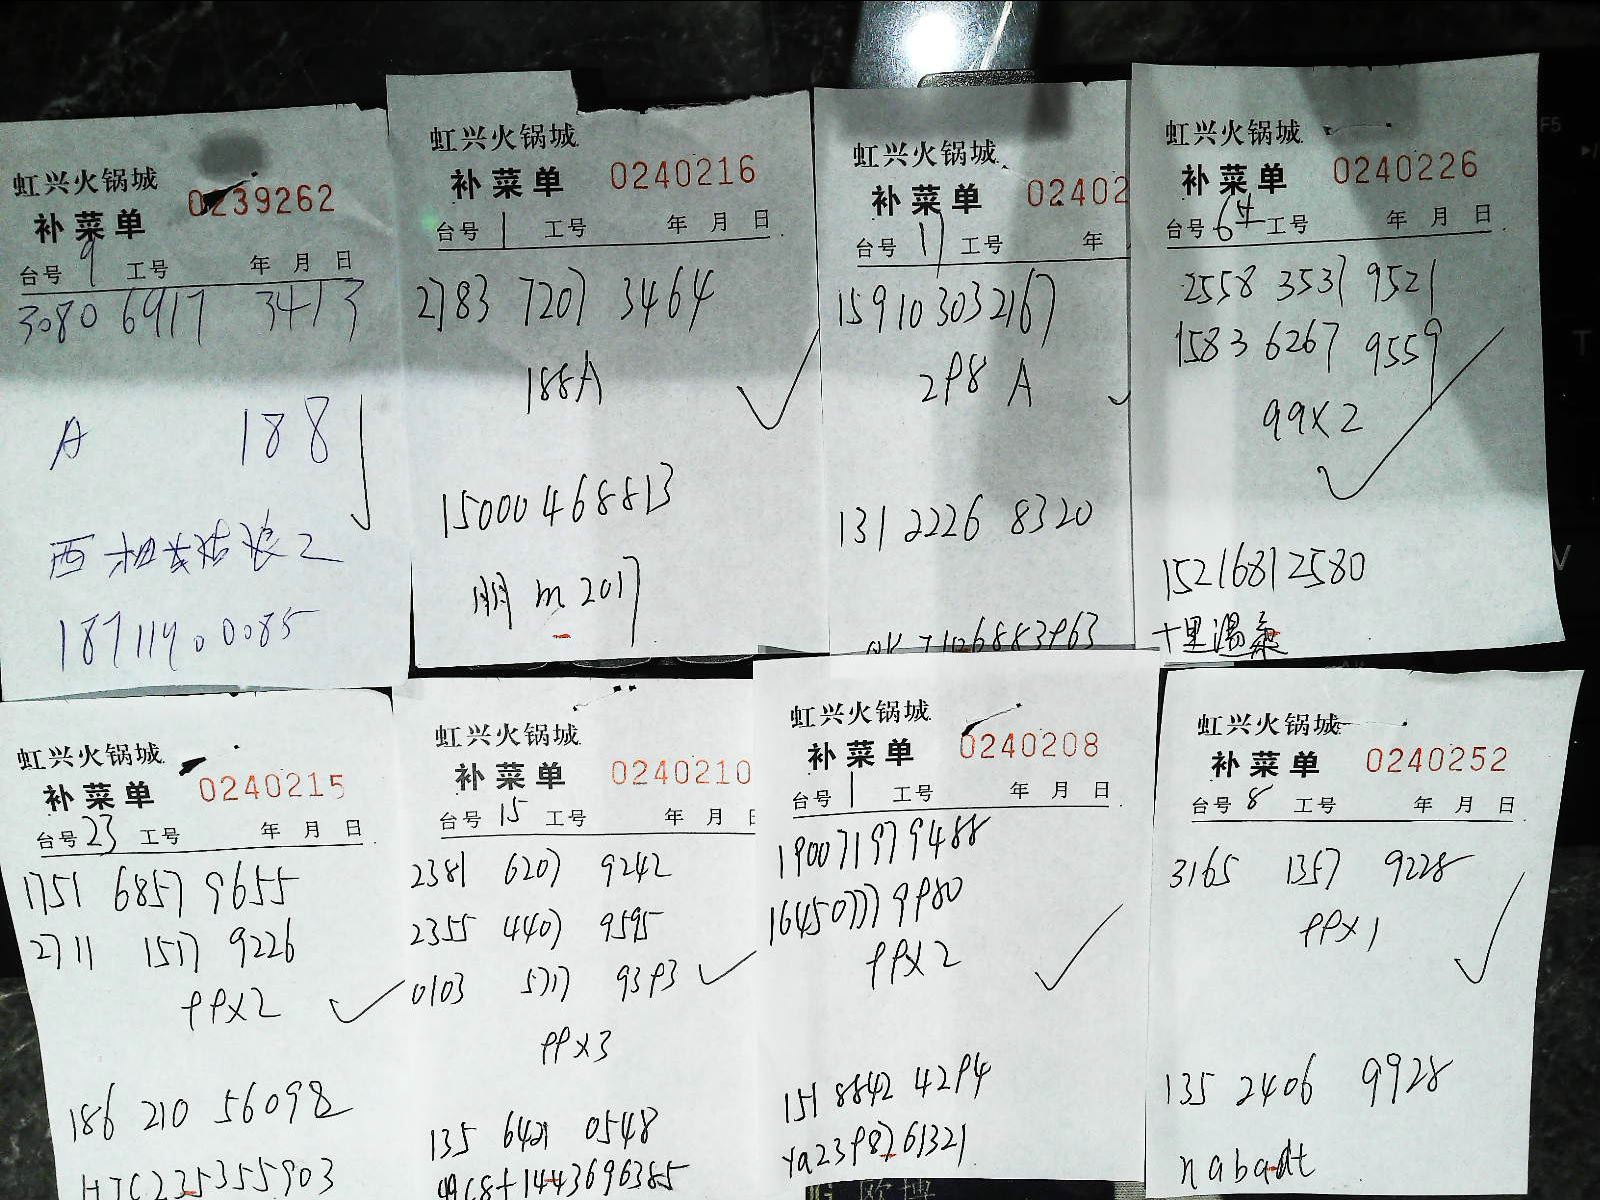 虹兴火锅城
补菜单 0239262
台号 9 工号 年 月 日
3080 6917 3413
A 188
187119 00085
虹兴火锅城
补菜单 0240216
台号 1 工号 年 月 日
2783 7207 3464
188A
15000468813
朋 m 2017
虹兴火锅城
补菜单 02402
台号 17 工号 年
15910 3032167
298 A
131 2226 8320
虹兴火锅城
补菜单 0240226
台号 工号 年 月 日
2558 3537 9521
1583 6267 9559
99X2
15216812580
十里温泉
虹兴火锅城
补菜单 0240215
台号 23 工号 年 月 日
1751 6857 9655
2711 1517 9226
99X2
186 210 56098
HTC225355903
虹兴火锅城
补菜单 0240210
台号 15 工号 年 月 日
2381 6207 9242
2355 4407 9595
0103 5717 9393
99X3
135 6421 0548
虹兴火锅城
补菜单 0240208
台号 1 工号 年 月 日
190071979488
164507779980
99X2
151 8842 4294
ya2398761321
虹兴火锅城
补菜单 0240252
台号 8 工号 年 月 日
3165 1357 9228
99X1
135 2406 9928
nabadt